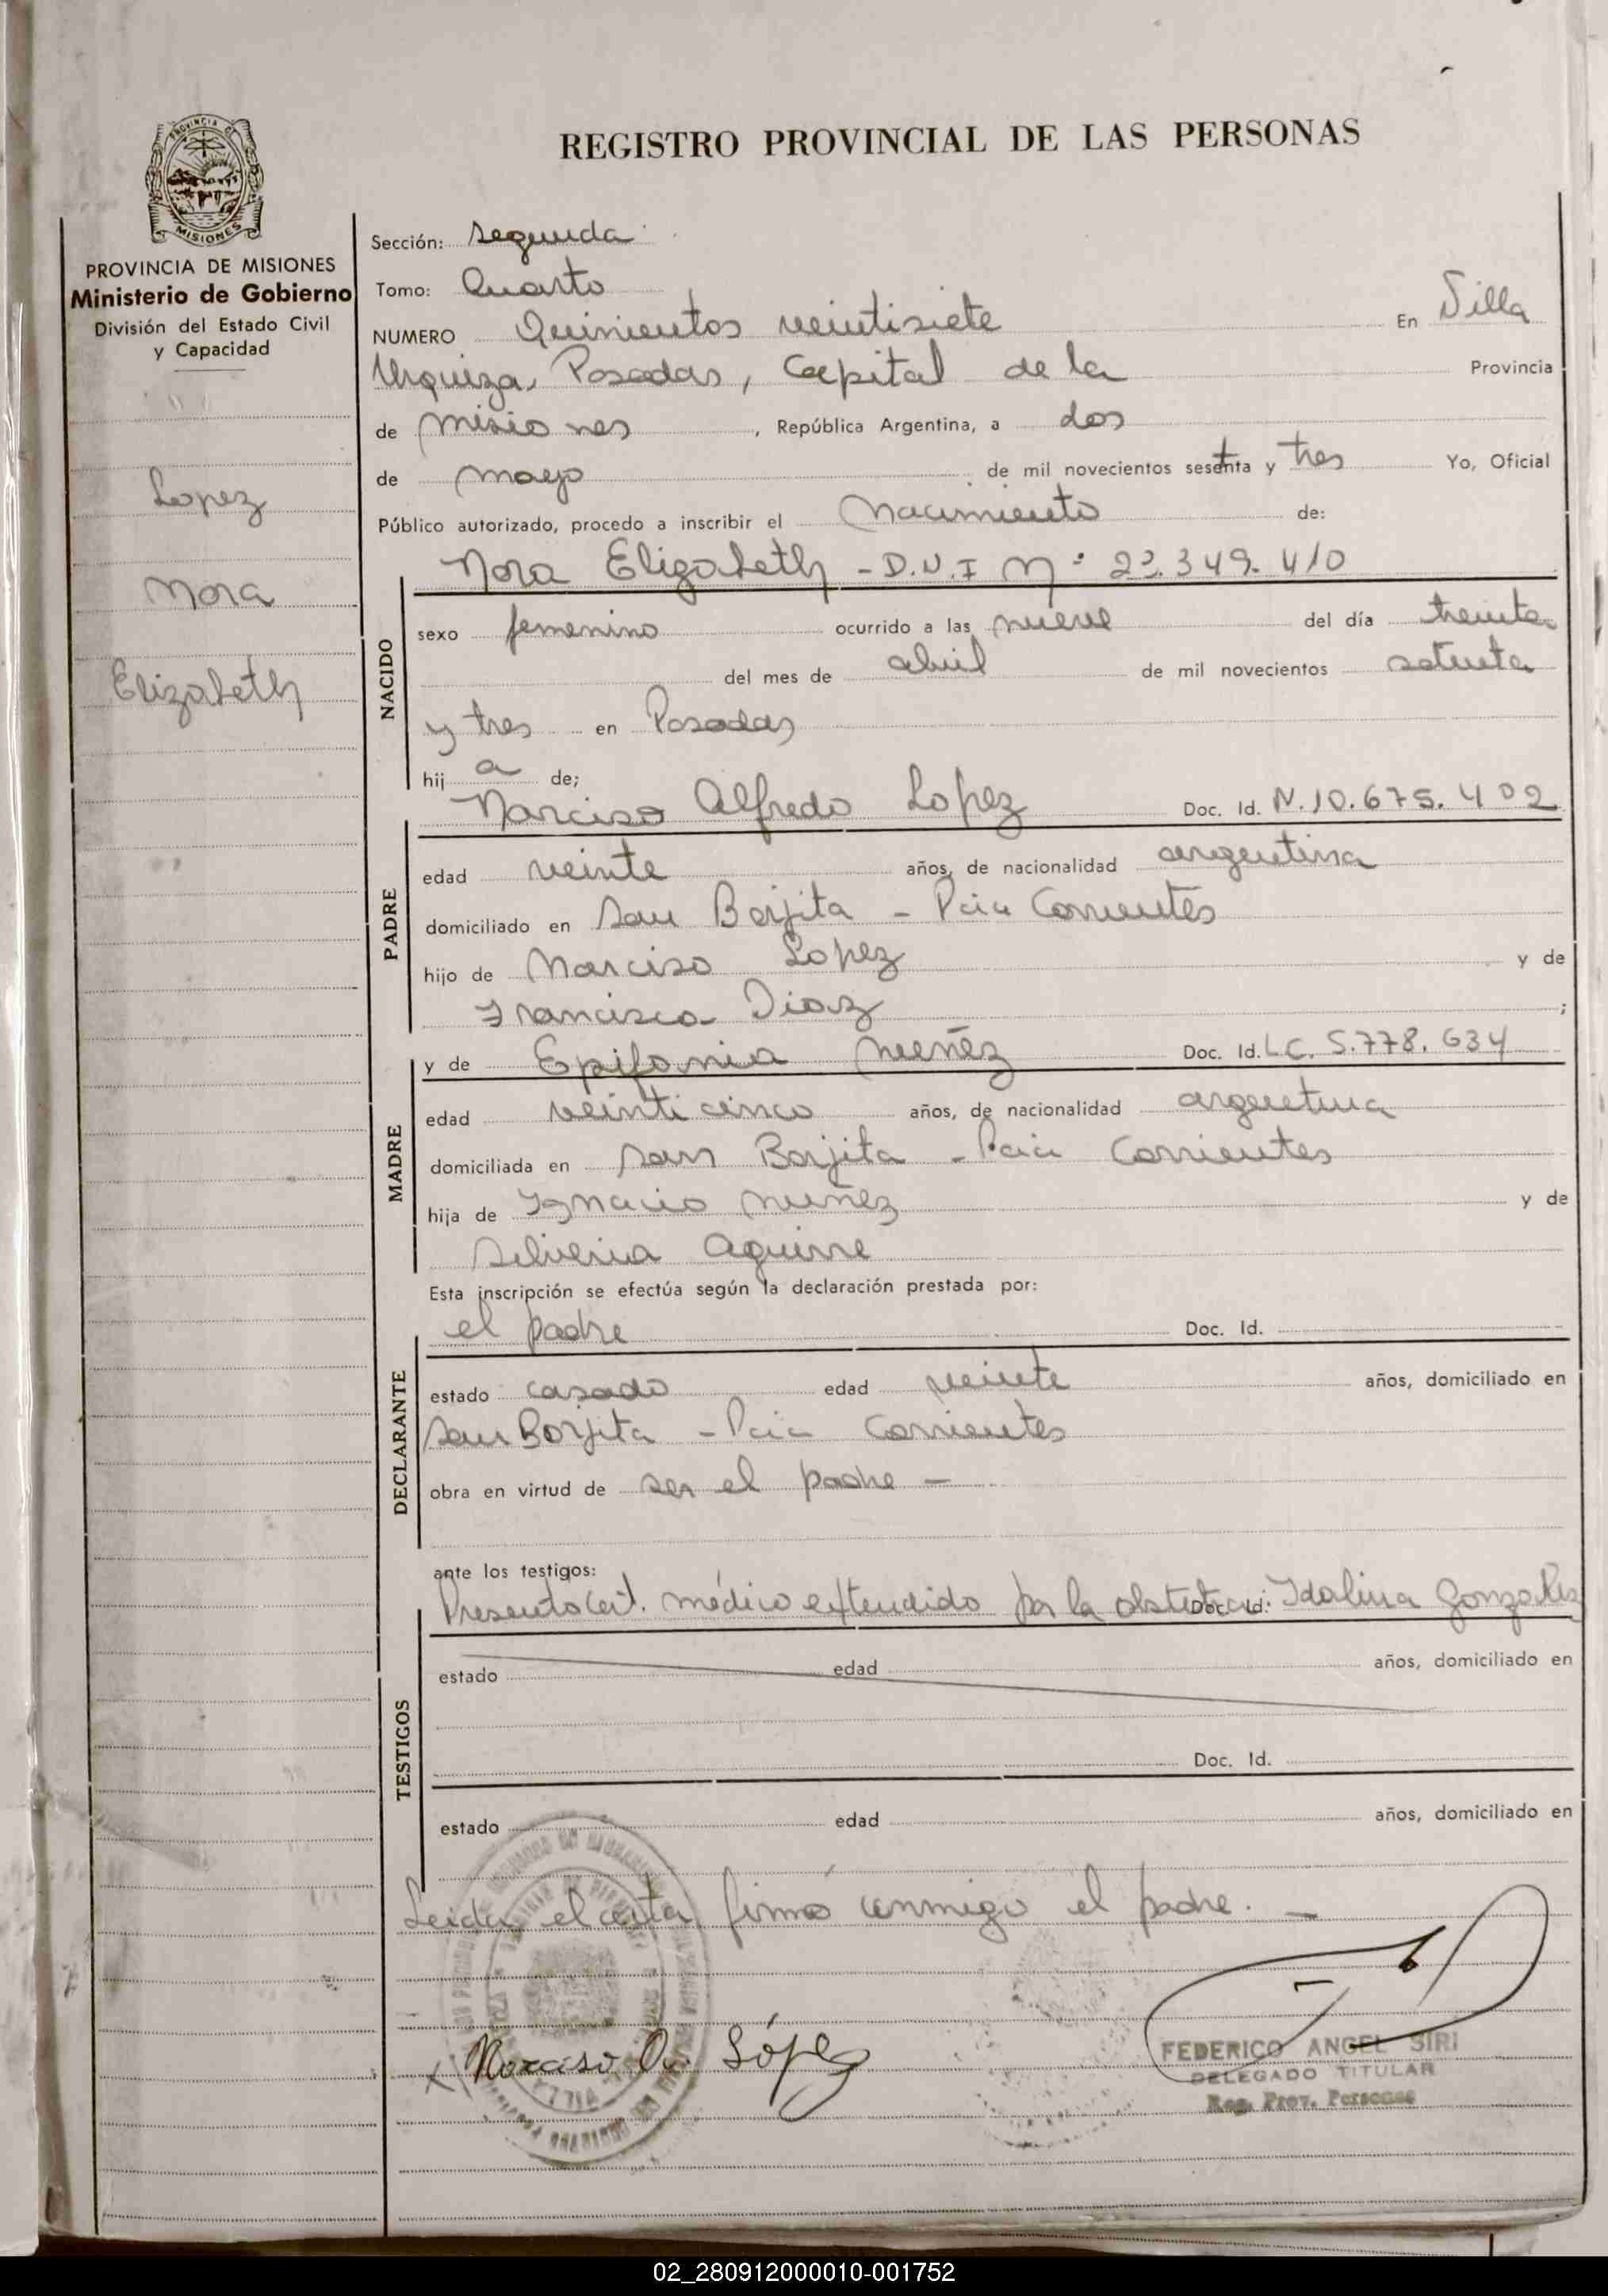 REGISTRO PROVINCIAL DE LAS PERSONAS
PROVINCIA DE
MISIONES
PROVINCIA DE MISIONES
Ministerio de Gobierno
División del Estado Civil
y Capacidad
Lopez
Nora
Elizabeth
Sección: Segunda
Tomo: Cuarto
NUMERO Quinientos veintisiete En Villa
Urquiza, Posadas, Capital de la Provincia
de Misiones, República Argentina, a dos
de mayo de mil novecientos sesetnta y tres Yo, Oficial
Público autorizado, procedo a inscribir el Nacimiento de:
Nora Elizabeth - D.N.I Nº 23.349.410
NACIDO
sexo femenino ocurrido a las nueve del día treinta
del mes de abril de mil novecientos setenta
y tres en Posadas
hij a de;
Narciso Alfredo Lopez Doc. Id. N.10.675.402
PADRE
edad veinte años, de nacionalidad argentina
domiciliado en San Borjita - Pcia Corrientes
hijo de Narciso Lopez y de
Francisca Diaz ;
y de Epifania Nuñez Doc. Id. LC. 5.778.634
MADRE
edad veinticinco años, de nacionalidad argentina
domiciliada en San Borjita - Pcia Corrientes
hija de Ignacio Nuñez y de
Silveria Aguirre
Esta inscripción se efectúa según la declaración prestada por:
el padre Doc. Id.
DECLARANTE
estado casado edad veinte años, domiciliado en
San Borjita - Pcia Corrientes
obra en virtud de ser el padre -
ante los testigos:
Presento Cert. médico extendido por la obstetra: Doc. Id. Idalina Gonzalez
TESTIGOS
estado edad años, domiciliado en
Doc. Id.
estado edad años, domiciliado en
Leida el acta firmó conmigo el padre. -
Narciso A. López
FEDERICO ANGEL SIRI
DELEGADO TITULAR
Reg. Prov. Personas
02_280912000010-001752